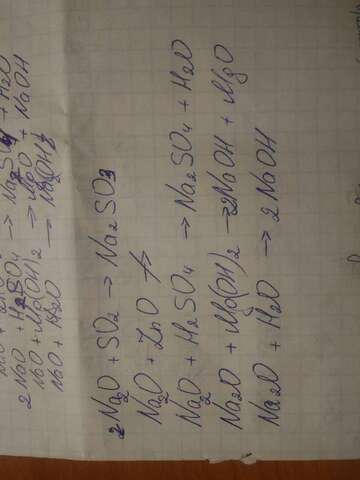 2 NaO + H2SO4 → Na2SO4 + H2O
NaO + Mg(OH)2 → MgO + NaOH
NaO + H2O → Na2OH2
2 Na2O + SO2 → Na2SO3
Na2O + ZnO ↛
Na2O + H2SO4 → Na2SO4 + H2O
Na2O + Mg(OH)2 → 2NaOH + MgO
Na2O + H2O → 2 NaOH